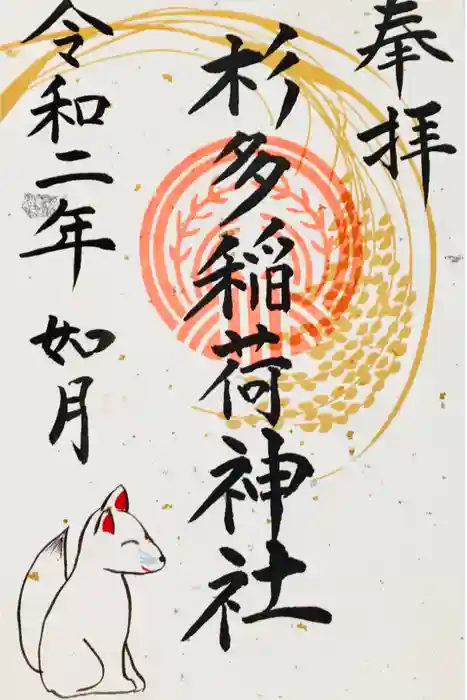 奉拝
杉多稲荷神社
令和二年 如月